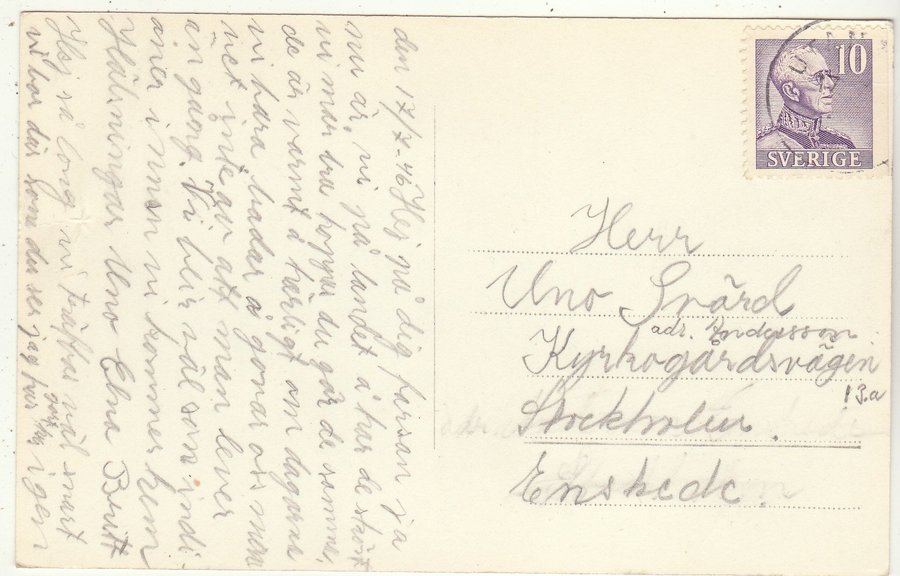 den 17/7-46 Hej på dig farsan ja
nu är vi på landet å har de skönt
vi mår bra hoppas du gör de samma,
de är varmt å härligt om dagarna
vi bara badar å gonar oss man
vet inte av att man lever
än gång. Vi blir väl som indi
aner innan vi kommer hem
Hälsningar Uno Elna Britt
Hej så long vi träffas väl snart
vi bor där som du ser jag har igen
10
SVERIGE
Herr
Uno Svärd
adr. Andersson
Kyrkogårdsvägen
13.a
Stockholm.
Enskede